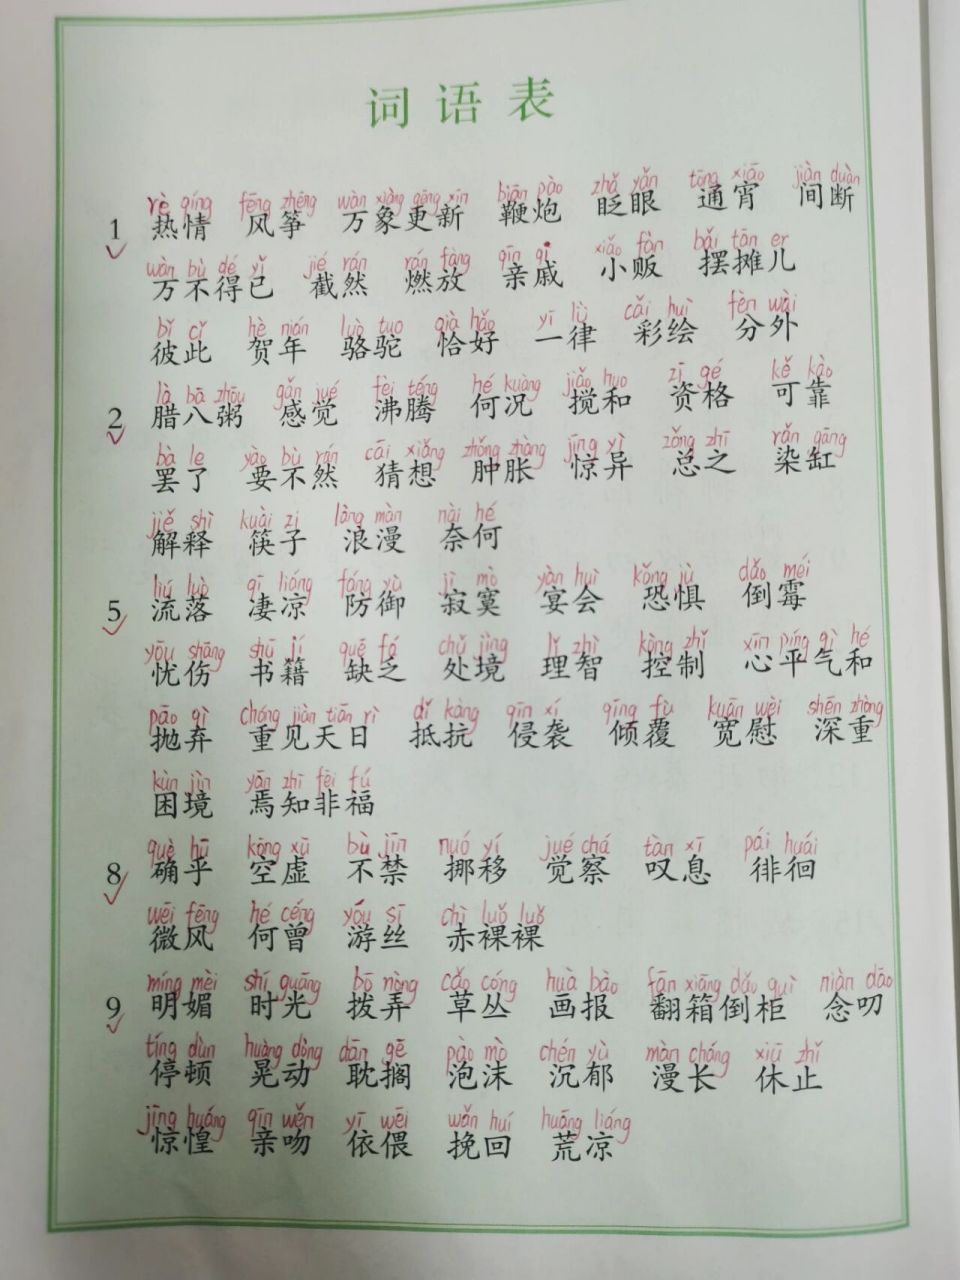 词语表
rè qíng fēng zhēng wàn xiàng gēng xīn biān pào zhǎ yǎn tōng xiāo jiàn duàn
1 热情 风筝 万象更新 鞭炮 眨眼 通宵 间断
wàn bù dé yǐ jié rán rán fàng qīn qi xiǎo fàn bǎi tān er
万不得已 截然 燃放 亲戚 小贩 摆摊儿
bǐ cǐ hè nián luò tuo qià hǎo yī lǜ cǎi huì fèn wài
彼此 贺年 骆驼 恰好 一律 彩绘 分外
là bā zhōu gǎn jué fèi téng hé kuàng jiǎo huo zī gé kě kào
2 腊八粥 感觉 沸腾 何况 搅和 资格 可靠
bà le yào bù rán cāi xiǎng zhǒng zhàng jīng yì zǒng zhī rǎn gāng
罢了 要不然 猜想 肿胀 惊异 总之 染缸
jiě shì kuài zi làng màn nài hé
解释 筷子 浪漫 奈何
liú luò qī liáng fáng yù jì mò yàn huì kǒng jù dǎo méi
5 流落 凄凉 防御 寂寞 宴会 恐惧 倒霉
yōu shāng shū jí quē fá chǔ jìng lǐ zhì kòng zhì xīn píng qì hé
忧伤 书籍 缺乏 处境 理智 控制 心平气和
pāo qì chóng jiàn tiān rì dǐ kàng qīn xí qīng fù kuān wèi shēn zhòng
抛弃 重见天日 抵抗 侵袭 倾覆 宽慰 深重
kùn jìng yān zhī fēi fú
困境 焉知非福
què hū kōng xū bù jīn nuó yí jué chá tàn xī pái huái
8 确乎 空虚 不禁 挪移 觉察 叹息 徘徊
wēi fēng hé céng yóu sī chì luǒ luǒ
微风 何曾 游丝 赤裸裸
míng mèi shí guāng bō nòng cǎo cóng huà bào fān xiāng dǎo guì niàn dāo
9 明媚 时光 拨弄 草丛 画报 翻箱倒柜 念叨
tíng dùn huàng dòng dān gē pào mò chén yù màn cháng xiū zhǐ
停顿 晃动 耽搁 泡沫 沉郁 漫长 休止
jīng huáng qīn wěn yī wēi wǎn huí huāng liáng
惊惶 亲吻 依偎 挽回 荒凉